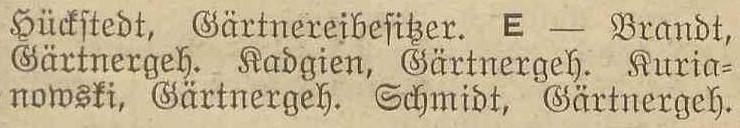 Hückstedt, Gärtnereibesitzer. E — Brandt,
Gärtnergeh. Kadgien, Gärtnergeh. Kuria-
nowski, Gärtnergeh. Schmidt, Gärtnergeh.